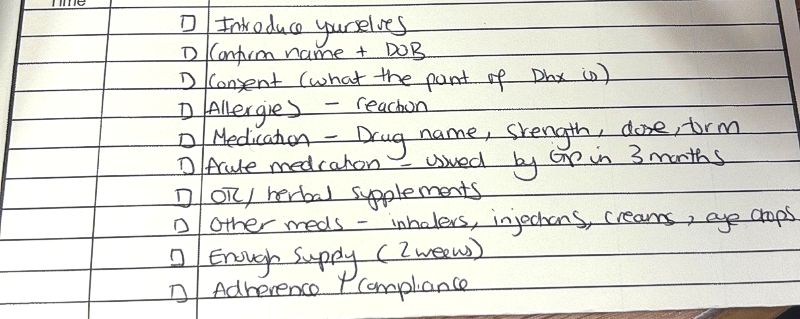 Time
Introduce yourselves
Confirm name + DOB
Consent (what the point of Dhx is)
Allergies - reaction
Medication - Drug name, strength, dose, form
Acute medication - issued by GP in 3 months
OTC/ herbal supplements
Other meds - inhalers, injections, creams, eye drops
Enough supply (2 weeks)
Adherence + Compliance